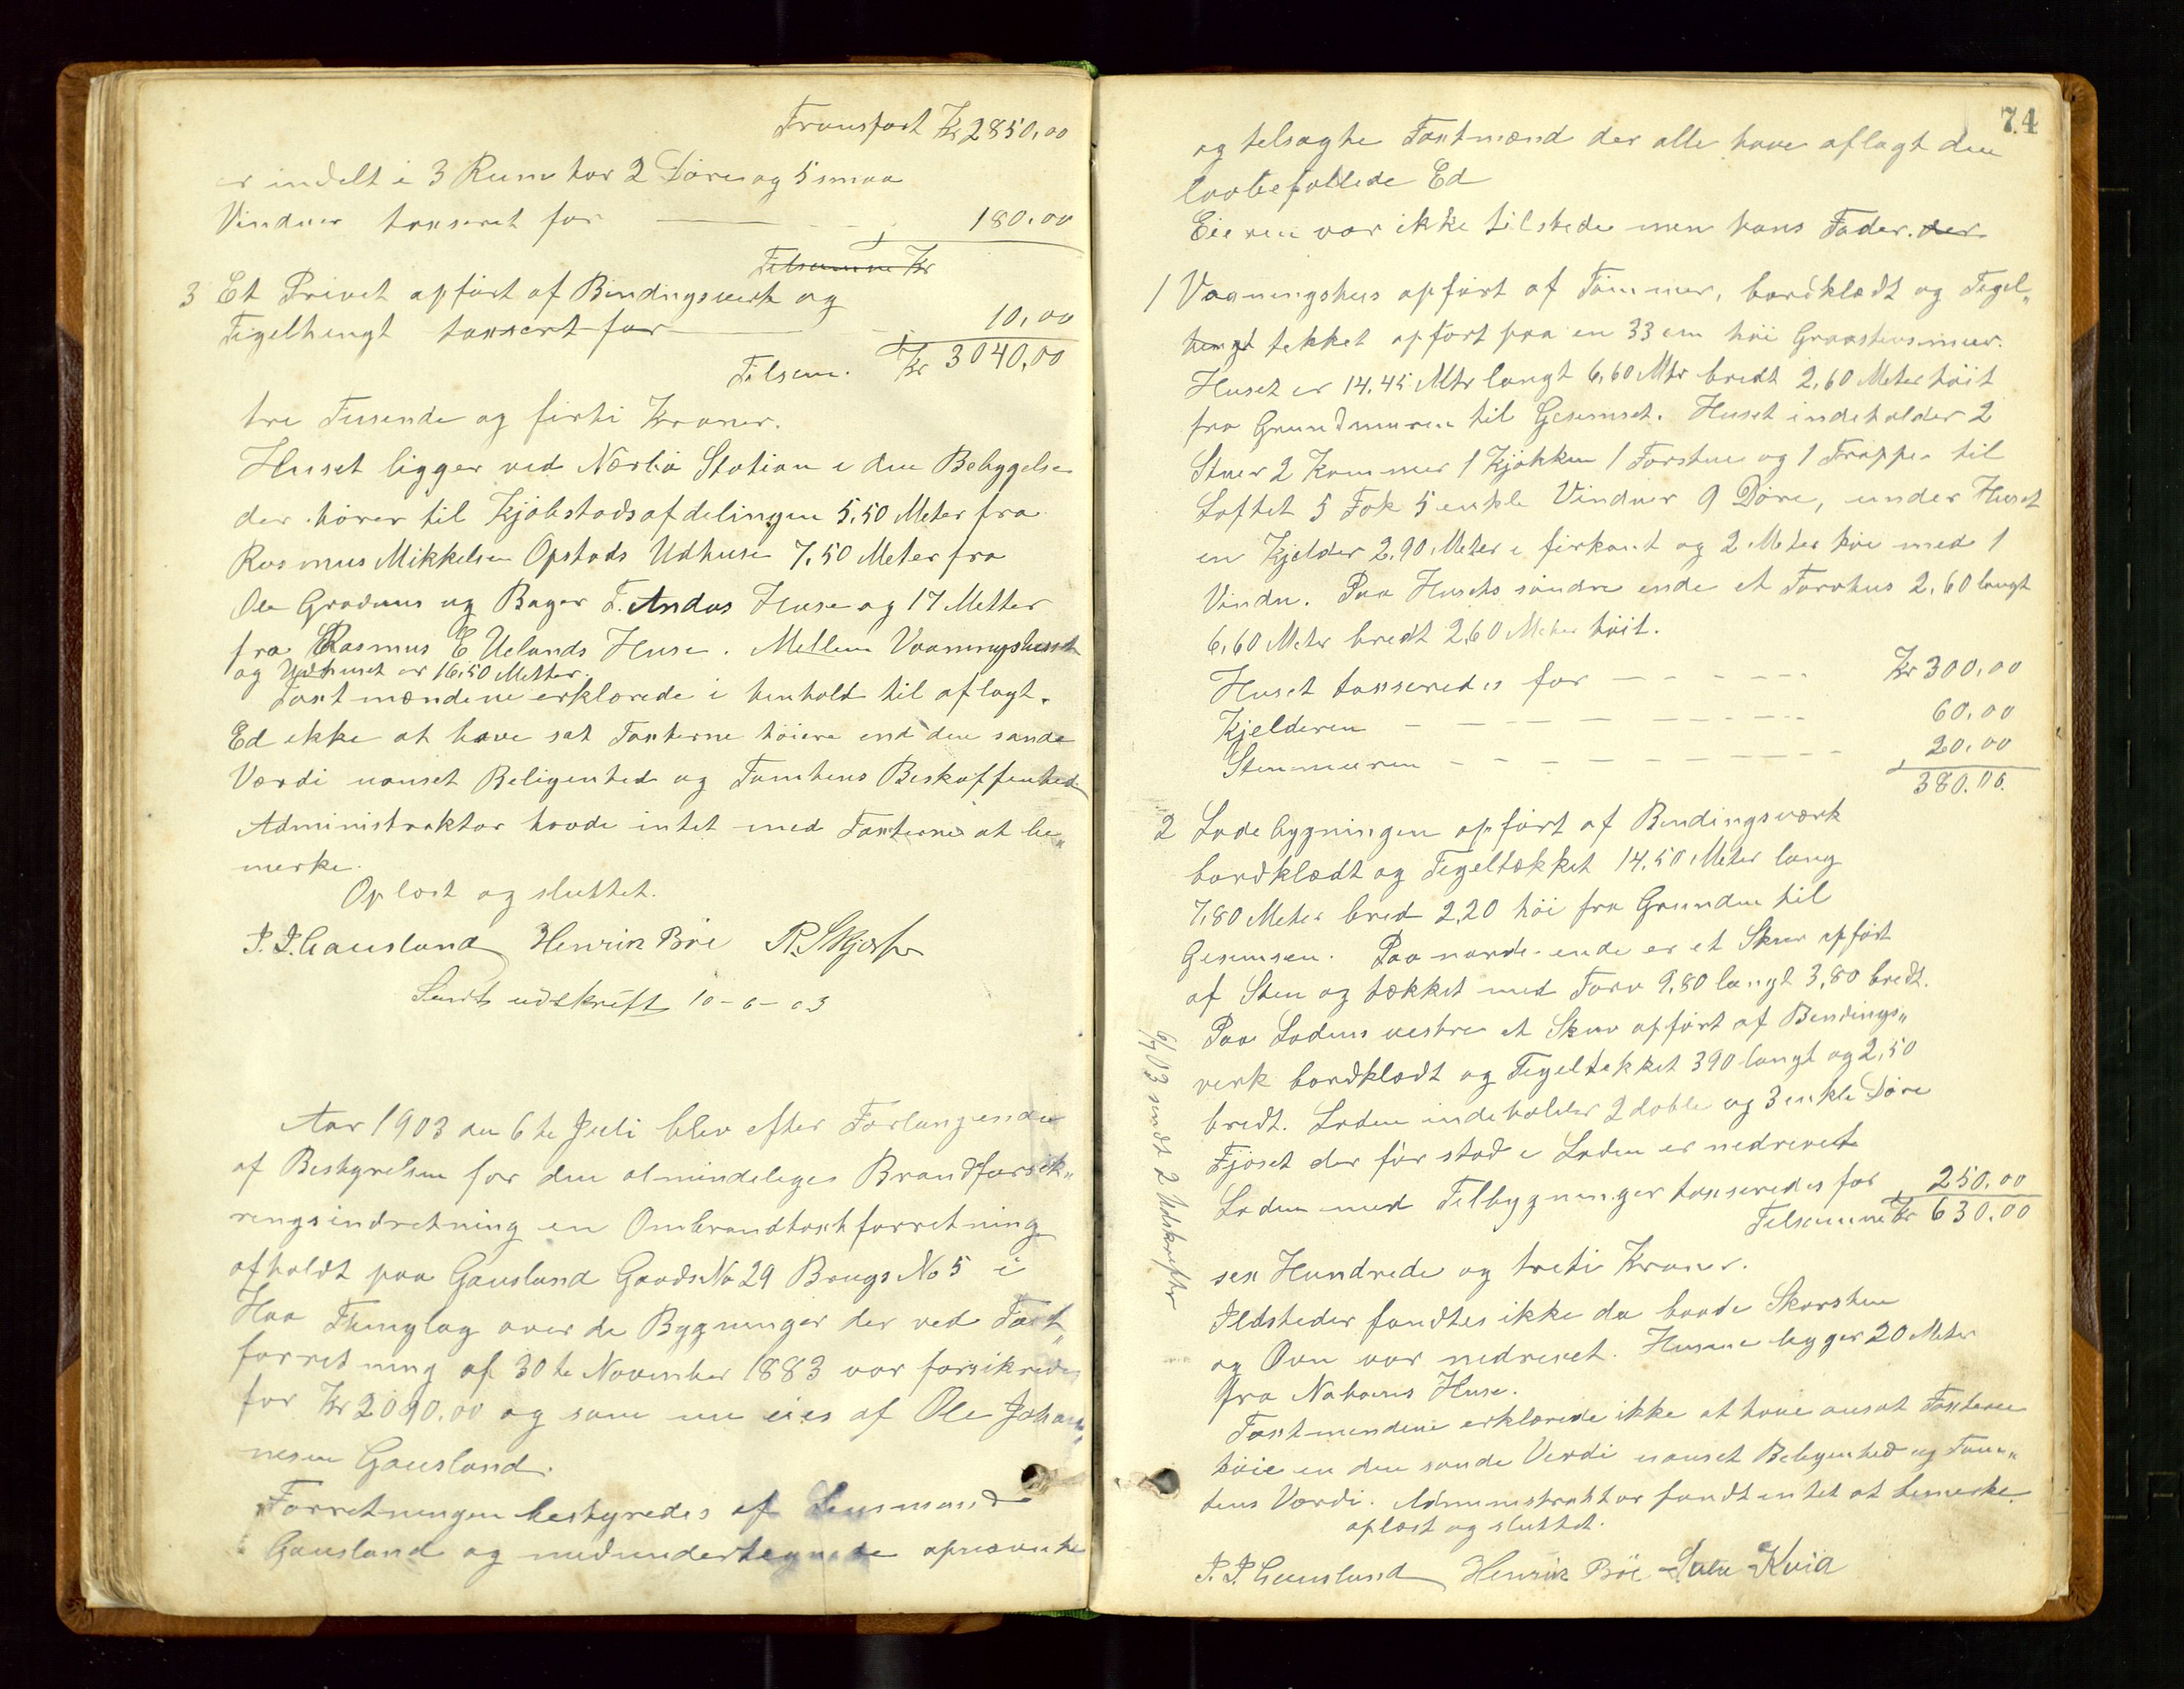 Transport Kr 2850,00
er indelt i 3 Rum har 2 Döre og 5 smaa
Vinduer taxseret for 180,00
Tilsamme Kr
3 Et Privet opfört af Bindingsverk og
Tigelhengt taxsert for 10,00
Tilsam. Kr 3040,00
tre Tusende og firti Kroner.
Huset ligger ved Nærbö Station i den Bebyggelse
der hörer til Kjöbstadsafdelingen 5,50 Meter fra
Rasmus Mikkelsen Opstads Udhuse 7,50 Meter fra
Ole Graduns og Bager T. Andas Huse og 17 Metter
fra Rasmus E Uelands Huse. Mellem Vaaningshuset
og Udhuset er 16,50 Metter.
Taxtmændene erklærede i henhold til aflagt
Ed ikke at have sat Taxterne höiere end den sande
Værdi uanset Beligenhed og Tomtens Beskaffenhed
Administraktor havde intet med Taxterne at be„
merke.
Oplæst og sluttet.
P. P. Gausland Henrik Böe R. Skjærpe
Sendt udskrift 10-6-03
Aar 1903 den 6te Juli blev efter Forlangende
af Bestyrelsen for den almindelige Brandforsik„
ringsindretning en Ombrandtaxtforretning
afholdt paa Gausland Gaards No 29 Brugs No 5 i
Haa Thinglag over de Bygninger der ved Taxt„
forretning af 30te November 1883 var forsikrede
for Kr 2090,00 og som nu eies af Ole Johan„
nesen Gausland.
Forretningen bestyredes af Lensmand
Gausland og medundertegnede opnævnte
74
og tilsagte Taxtmænd der alle have aflagt den
lovbefallede Ed
Eieren var ikke tilstede men hans Fader. der
1 Vaaningshus opfört af Tömmer, bordklædt og Tegel„
hengt tekket opfört paa en 33 cm höi Graastensmur.
Huset er 14,45 Mtr langt 6,60 Mtr bredt 2,60 Meter höit
fra Grundmuren til Gesemset. Huset indeholder 2
Stuer 2 Kammer 1 Kjökken 1 Forstue og 1 Trappe til
Loftet 5 Fak 5 enkle Vinduer 9 Döre, under Huset
en Kjelder 2,90 Meter i firkant og 2 Meter höi med 1
Vindu. Paa Husets söndre ende et Torvhus 2,60 langt
6,60 Meter bredt 2,60 Meter höit.
Huset taxseredes for Kr 300,00
Kjelderen 60,00
Stenmuren 20,00
380.00.
2 Ladebygningen opfört af Bindingsværk
bordklædt og Tegeltækket 14,50 Meter lang
7,80 Meter bred 2,20 höi fra Grunden til
Gesemsen. Paa nordre ende er et Skur opfört
af Sten og tækket med Torv 9,80 langt 3,80 bredt.
Paa Ladens vestre et Skur opfört af Bindings„
verk bordklædt og Tegeltekket 390 langt og 2,50
bredt. Laden indeholder 2 doble og 3 enkle Döre
Fjöset der för stod i Laden er nedrevet
Laden med Tilbygninger taxseredes for 250.00
Tilsamme Kr 630.00
sex Hundrede og treti Kroner.
Ildsteder fandtes ikke da baade Skorsten
og Ovn var nedrevet. Husene ligger 20 Meter
fra Naboens Huse.
Taxtmendene erklærede ikke at have ansat Taxterne
höie en den sande Verdi uanset Beligenhed og Tom„
tens Værdi. Administraktor fandt intet at bemerke.
oplæst og sluttet.
P. P. Gausland Henrik Böe Kvia
6/7 03 sendt 2 Udskrifter